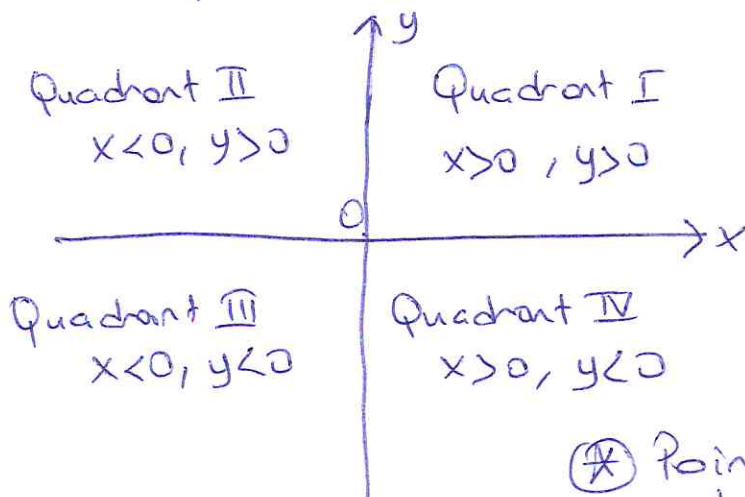 y
Quadrant II
x<0, y>0
Quadrant I
x>0, y>0
0
x
Quadrant III
x<0, y<0
Quadrant IV
x>0, y<0